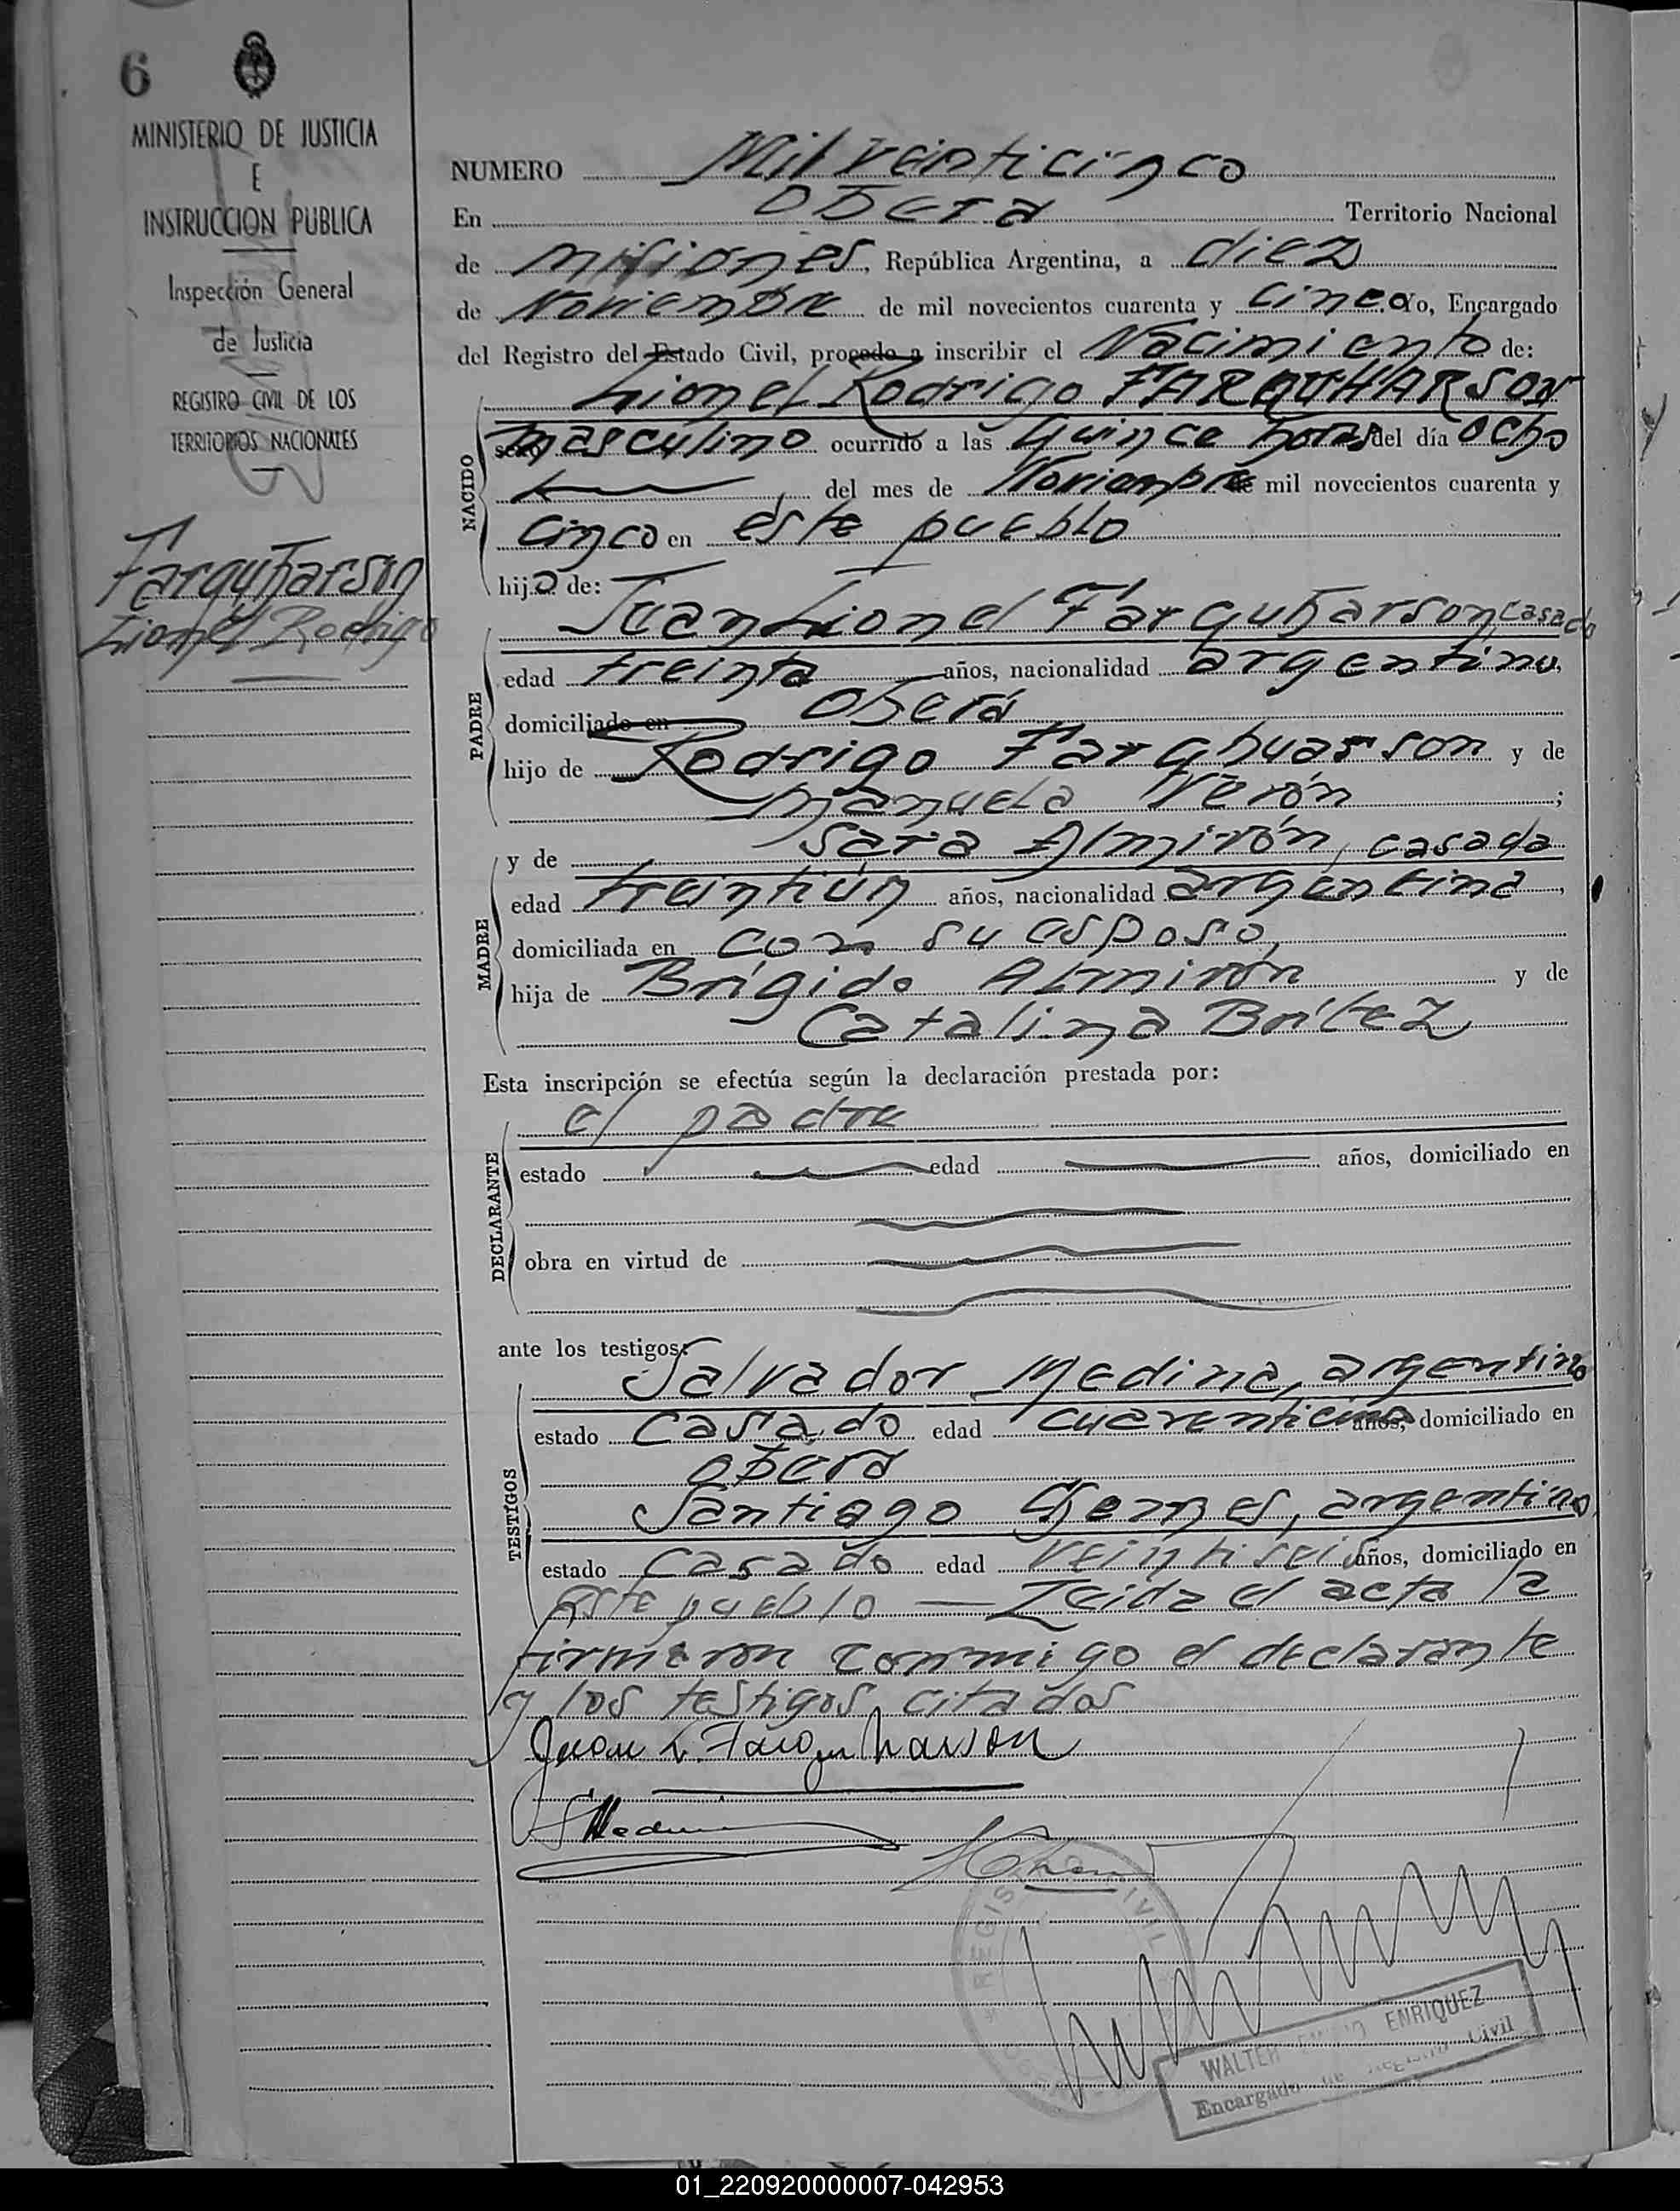 6
MINISTERIO DE JUSTICIA
E
INSTRUCCION PUBLICA
Inspección General
de Justicia
REGISTRO CIVIL DE LOS
TERRITORIOS NACIONALES
Farquharson
Lionel Rodrigo
NUMERO Mil veinticinco
En Oberá Territorio Nacional
de Misiones, República Argentina, a diez
de Noviembre de mil novecientos cuarenta y cinco Yo, Encargado
del Registro del Estado Civil, procedo a inscribir el Nacimiento de:
Lionel Rodrigo FARQUHARSON
sexo masculino ocurrido a las quince horas del día ocho
del mes de Noviembre de mil novecientos cuarenta y
cinco en este pueblo
NACIDO
hijo de:
Juan Lionel Farquharson, casado
edad treinta años, nacionalidad argentino,
domiciliado en Oberá
hijo de Rodrigo Farqhuarson y de
Manuela Verón ;
PADRE
y de Sara Almirón, casada
edad treintiún años, nacionalidad argentina,
domiciliada en con su esposo,
hija de Brígido Almirón y de
Catalina Brítez
MADRE
Esta inscripción se efectúa según la declaración prestada por:
el padre
estado edad años, domiciliado en
obra en virtud de
DECLARANTE
ante los testigos:
Salvador Medina, argentino
estado casado edad años, domiciliado en
Oberá
Santiago argentino,
estado casado edad veintiseis años, domiciliado en
este pueblo — Leida el acta la
TESTIGOS
firmaron conmigo el declarante
y los testigos citados
Juan L. Farquharson
SMedina
REGISTRO CIVIL
WALTER ENRIQUEZ
Encargado de Registro Civil
01_220920000007-042953